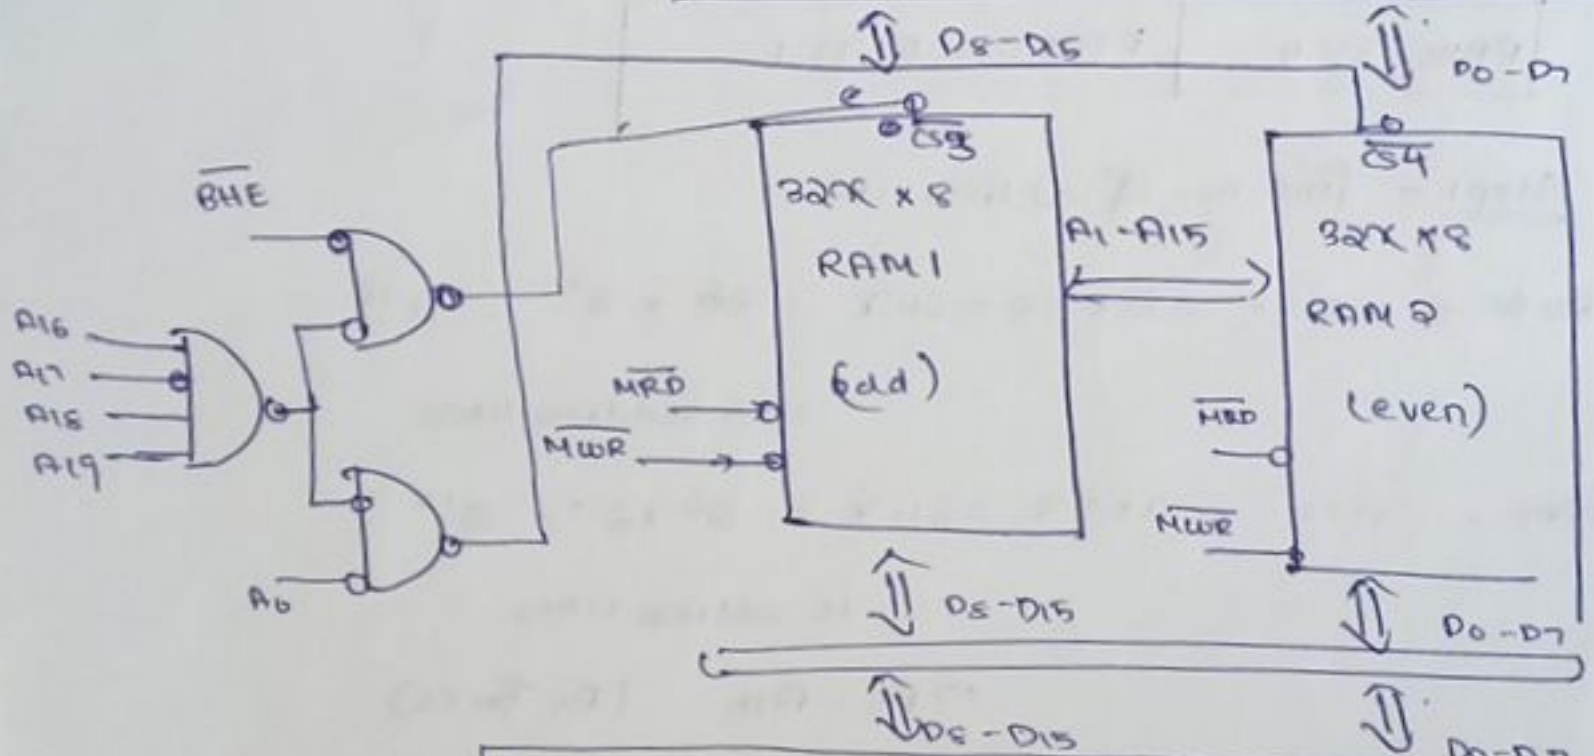 D8-D15
D0-D7
BHE
CS3
CS4
32K * 8
RAM 1
(odd)
A1-A15
32K * 8
RAM 2
(even)
A16
A17
A18
A19
MRD
MWR
MRD
MWR
A0
D8-D15
D0-D7
D8-D15
D0-D7